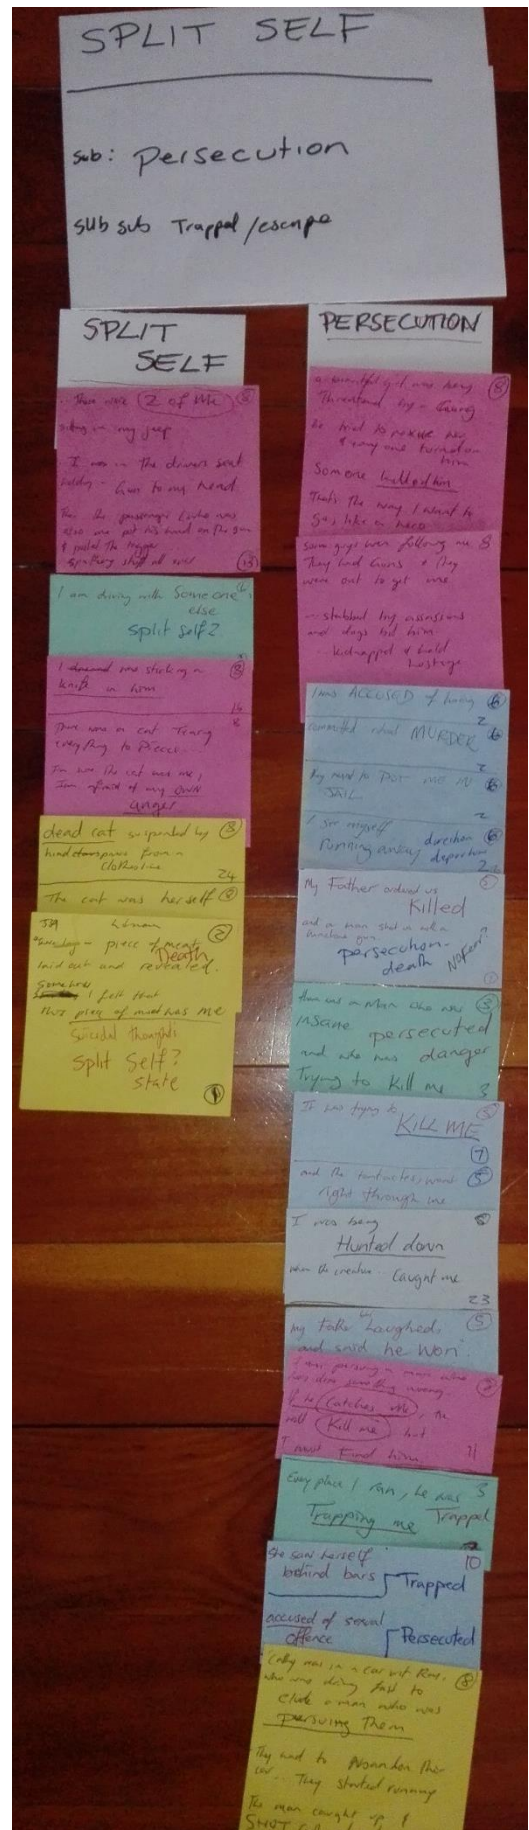 SPLIT SELF
sub: Persecution
sub sub Trapped/escape
SPLIT
SELF
There were 2 of Me
sitting in my jeep
I was in the drivers seat
holding a Gun to my head
also me put his hand on the gun
& pulled the trigger
all over
I am driving with Someone
else
split self?
I was sticking a
knife in him
There was a cat Tearing
everything to Pieces
the cat was me,
I'm afraid of my OWN
anger
dead cat suspended by
from a
clothesline
24
The cat was herself
piece of meat
Death
laid out and revealed.
I felt that
this piece of meat was me
Suicidal thoughts
Split Self?
state
PERSECUTION
a beautiful girl was being
Threatened by a Gang
he tried to rescue her
& every one turned on
him
Someone killed him
Thats the way I want to
go, like a hero
Some guys were following me 8
They had Guns & They
were out to get me
stabbed by assassins
and dogs bit him
kidnapped & held
hostage
I was ACCUSED of having 6
2
committed ritual MURDER 6
2
PUT ME IN 6
JAIL
2
I see myself 6
running away
direction
departure
My Father ordered us
Killed
and a man shot us with a
machine gun
persecution-
death
No fear?
there was a Man who was 3
insane persecuted
and who was danger
Trying to Kill me 3
It was trying to 5
KILL ME
7
and the tentacles, went 5
right through me
I was being
Hunted down
when the creature Caught me
23
my Father Laughed, 5
and said he Won
I am pursuing a man who
has done something wrong.
If he catches me, he
will Kill me but
I must Find him
Every place I ran, he was 3
Trapping me Trapped
She saw herself 10
behind bars Trapped
accused of sexual
offence Persecuted
Cathy was in a car with Ron. 8
who was driving fast to
elude a man who was
persuing Them
They had to Abandon their
car... They started running
The man caught up &
SHOT